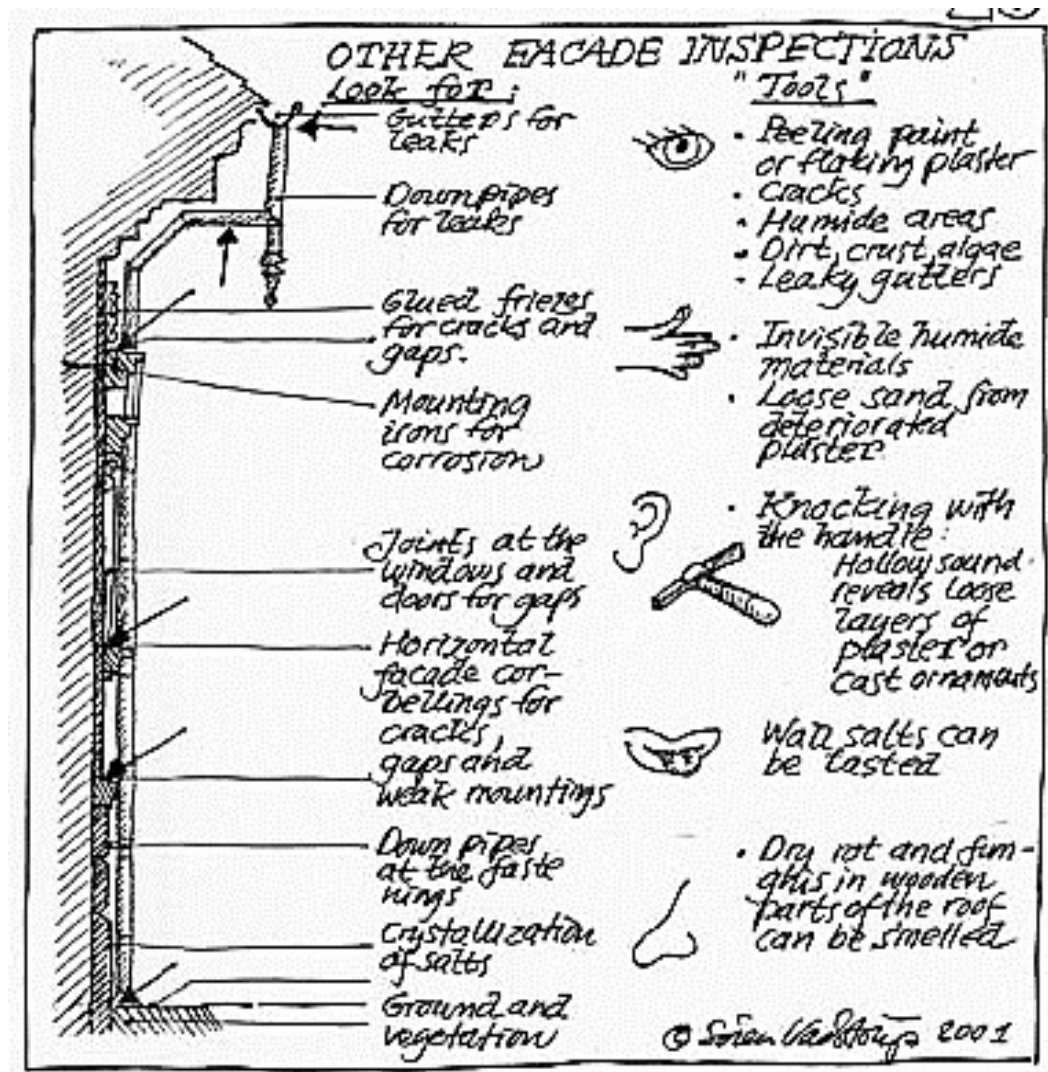 OTHER FACADE INSPECTIONS
Look for:
Gutters for
leaks
Down pipes
for leaks
Glued friezes
for cracks and
gaps.
Mounting
irons for
corrosion
Joints at the
windows and
doors for gaps
Horizontal
facade cor-
bellings for
cracks,
gaps and
weak mountings
Down pipes
at the faste
nings
Crystallization
of salts
Ground and
vegetation
"Tools"
• Peeling paint
or flaking plaster
• Cracks
• Humide areas
• Dirt, crust, algae
• Leaky gutters
• Invisible humide
materials
• Loose sand from
deteriorated
plaster
• Knocking with
the handle:
Hollow sound
reveals loose
layers of
plaster or
cast ornaments
Wall salts can
be tasted
• Dry rot and fun-
ghis in wooden
parts of the roof
can be smelled
© Søren Vadstrup 2001